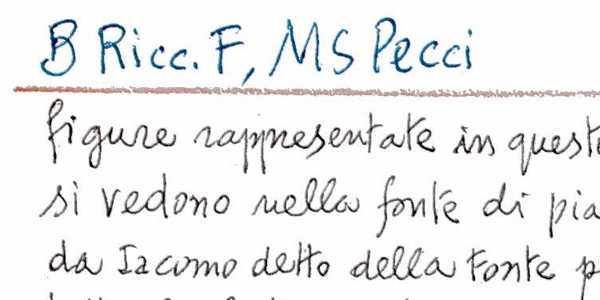 B Ricc. F, MS Pecci
figure rappresentate in queste
si vedono nella fonte di pia
da Iacomo detto della Fonte p